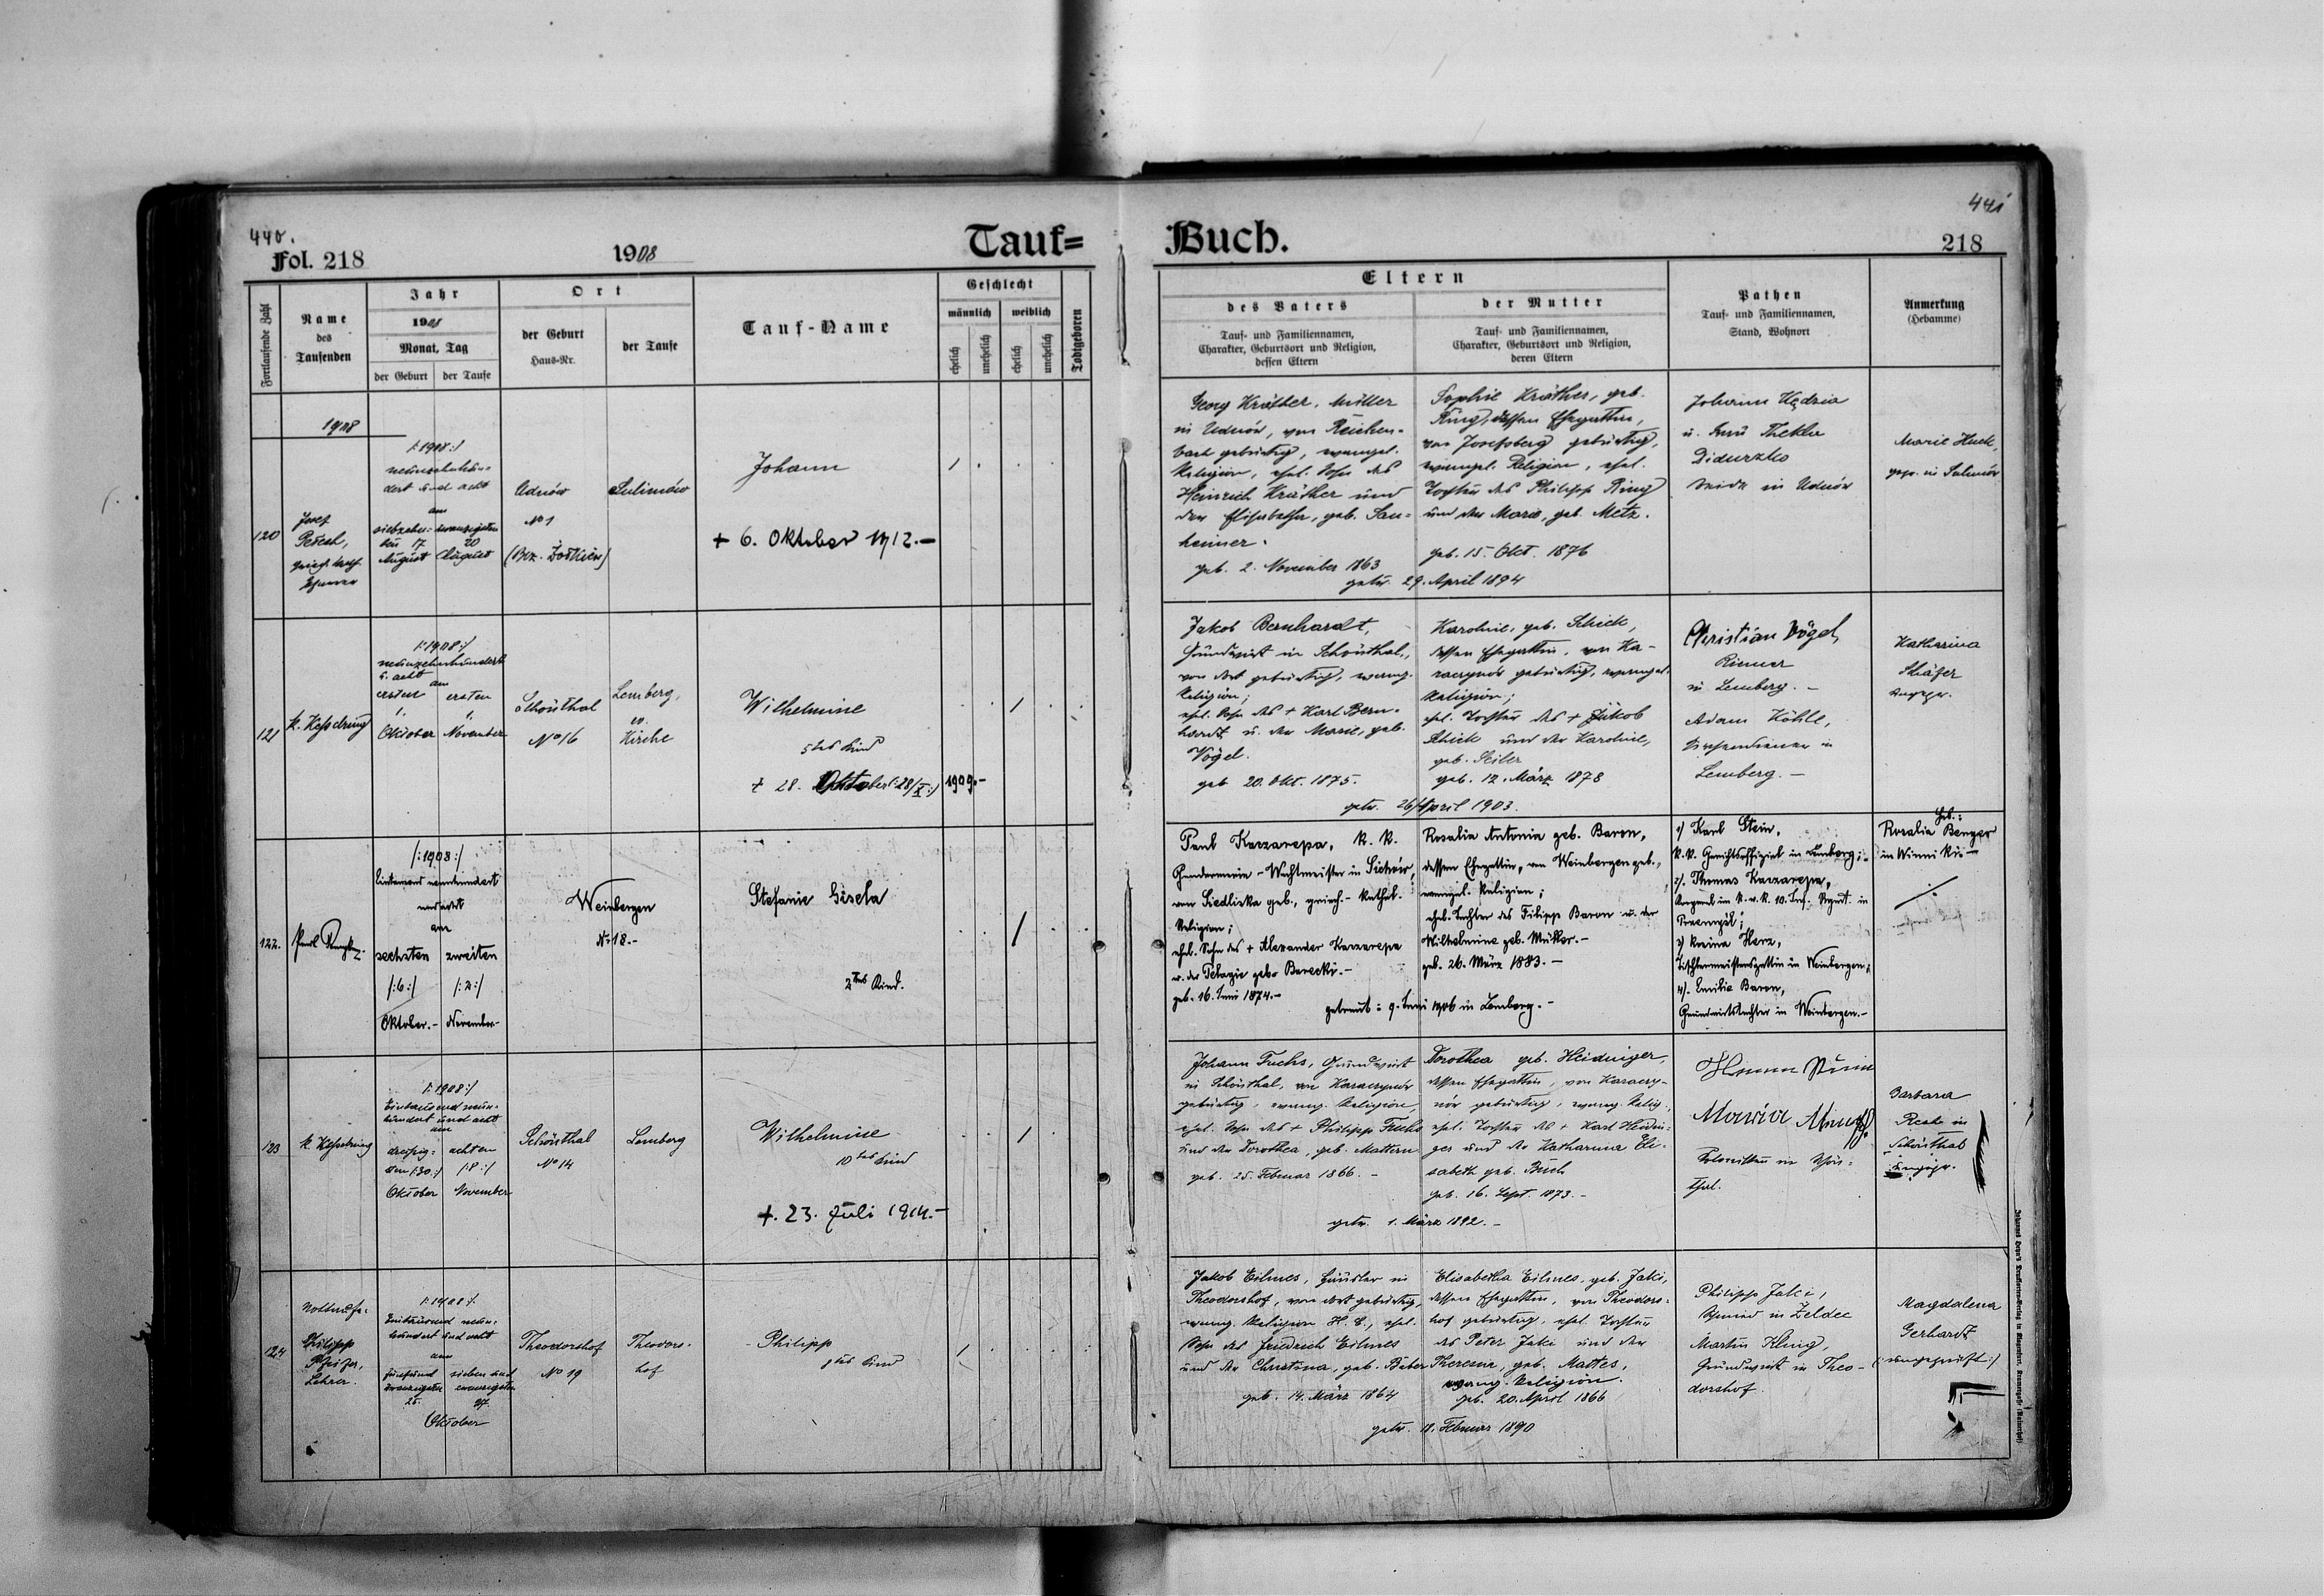 440.
Fol. 218
1908
Tauf=
Fortlaufende Zahl
Name
des
Taufenden
Jahr
1908
Monat, Tag
der Geburt
der Taufe
Ort
der Geburt
Haus-Nr.
der Taufe
Tauf-Name
Geschlecht
männlich
weiblich
ehelich
unehelich
ehelich
unehelich
Todtgeboren
1908
120
Josef
/:1908:/
neunzehnhun-
dert und acht
am
siebzehn-
ten 17.
August
zwanzigsten
20
August
Udnów
No 1
(Bez. Żółkiew)
Sulimów
Johann
+ 6. Oktober 1912.-
121
K. Kesselring
/:1908:/
neunzehnhundert
u. acht
am
ersten
1.
Oktober
ersten
1.
November
Schönthal
No 16
Lemberg,
ev.
Kirche
Wilhelmine
5tes Kind
+ 28. Oktober (:28/X:) 1909.-
122.
/:1908:/
Eintausend neunhundert
und acht
am
sechsten
/:6:/
Oktober.-
zweiten
/:2:/
November-
Weinbergen
No 18.-
Stefanie Gisela
2tes Kind.
123
K. Kesselring
/:1908:/
Eintausend neun-
hundert und acht
am
dreißig-
sten /:30:/
Oktober
achten
/:8:/
November
Schönthal
No 14
Lemberg
Wilhelmine
10tes Kind
+. 23. Juli 1914.-
124
Nottaufe:
Philipp
Pfeifer,
Lehrer.
/:1908:/
Eintausend neun-
hundert und acht
am
fünfund
zwanzigsten
25.
sieben und
zwanzigsten
27.
Oktober
Theodorshof
No 19
Theodors-
hof
Philipp
Kind
441
Buch.
218
Eltern
des Vaters
Tauf- und Familiennamen,
Charakter, Geburtsort und Religion,
dessen Eltern
der Mutter
Tauf- und Familiennamen,
Charakter, Geburtsort und Religion,
deren Eltern
Pathen
Tauf- und Familiennamen,
Stand, Wohnort
Anmerkung
(Hebamme)
Georg Kräther, Müller
in Udnów, von Reichen-
bach gebürtig, evangel.
Religion, ehel. Sohn des
Heinrich Kräther und
der Elisabetha, geb. Sau-
heimer.
geb. 2. November 1863
Sophie Kräther, geb.
Ring, dessen Ehegattin,
von Josefsberg gebürtig,
evangel. Religion, ehel.
Tochter des Philipp Ring
und der Maria, geb. Metz.
geb. 15. Okt. 1876
getr. 29. April 1894
Johann Kędzia
u. Frau Thekla
Didurzko
beide in Udnów
Marie Huck,
gepr. in Sulimów
Jakob Bernhardt,
Grundwirt in Schönthal,
von dort gebürtig, evang.
Religion;
ehel. Sohn des + Karl Bern-
hardt u. der Marie, geb.
Vögel.
geb. 20. Okt. 1875.
Karoline, geb. Schick,
dessen Ehegattin, von Ka-
raczynów gebürtig, evangel.
Religion;
ehel. Tochter des + Jakob
Schick und der Karoline,
geb. Seiler
geb. 12. März 1878
getr. 26/April 1903.
Christian Vögel
Riemer
in Lemberg. -
Adam Köhle,
Kirchendiener in
Lemberg. -
Katharina
Schäfer
ungepr.
Paul Karzarepa, k. k.
Gendarmerie-Wachtmeister in Sichów,
von Siedliska geb., griech.-kathol.
Religion;
ehel. Sohn des + Alexander Karzarepa
u. der Pelagie geb. Barecki.-
geb. 16. Juni 1874.-
Rosalia Antonia geb. Baron,
dessen Ehegattin, von Weinbergen geb.,
evangel. Religion;
ehel. Tochter des Filipp Baron u. der
Wilhelmine geb. Müller.-
geb. 26. März 1883.-
getraut: 9. Juni 1906 in Lemberg.-
1) Karl Stein,
k. k. Gerichtsoffizial in Lemberg;-
2). Thomas Karzarepa,
in
Przemyśl;
3) Herz,
Tischlermeistersgattin in Weinbergen;
4). Emilie Baron,
Grundwirtstochter in Weinbergen.-
Heb.:
Rosalia Benger
in Winniki-
Johann Fuchs, Grundwirt
in Schönthal, von Karaczynów
gebürtig, evang. Religion,
ehel. Sohn des + Philipp Fuchs
und der Dorothea, geb. Mattern
geb. 25. Februar 1866. -
Dorothea geb. Heidinger,
dessen Ehegattin, von Karaczy-
nów gebürtig, evang. Relig.,
ehel. Tochter des + Karl Heidin-
ger und der Katharina Eli-
sabeth geb. Buch
geb. 16. Sept. 1873. -
getr. 1. März 1892. -
Maria
in Schön-
thal.
Barbara
in
Schönthal
ungepr.
Jakob Eilmes, Häusler in
Theodorshof, von dort gebürtig,
evang. Religion H. C., ehel.
Sohn des Friedrich Eilmes
und der Christina, geb. Buber
geb. 14. März 1864
Elisabetha Eilmes, geb. Jaki,
dessen Ehegattin, von Theodors-
hof gebürtig, ehel. Tochter
des Peter Jaki und der
Theresia, geb. Mattes,
evang. Religion.
geb. 20. April 1866
getr. 18. Februar 1890
Philipp Jaki,
Schmied in Zeldec
Martin Klung,
Grundwirt in Theo-
dorshof.
Magdalena
Gerhardt
(:ungeprüft:)